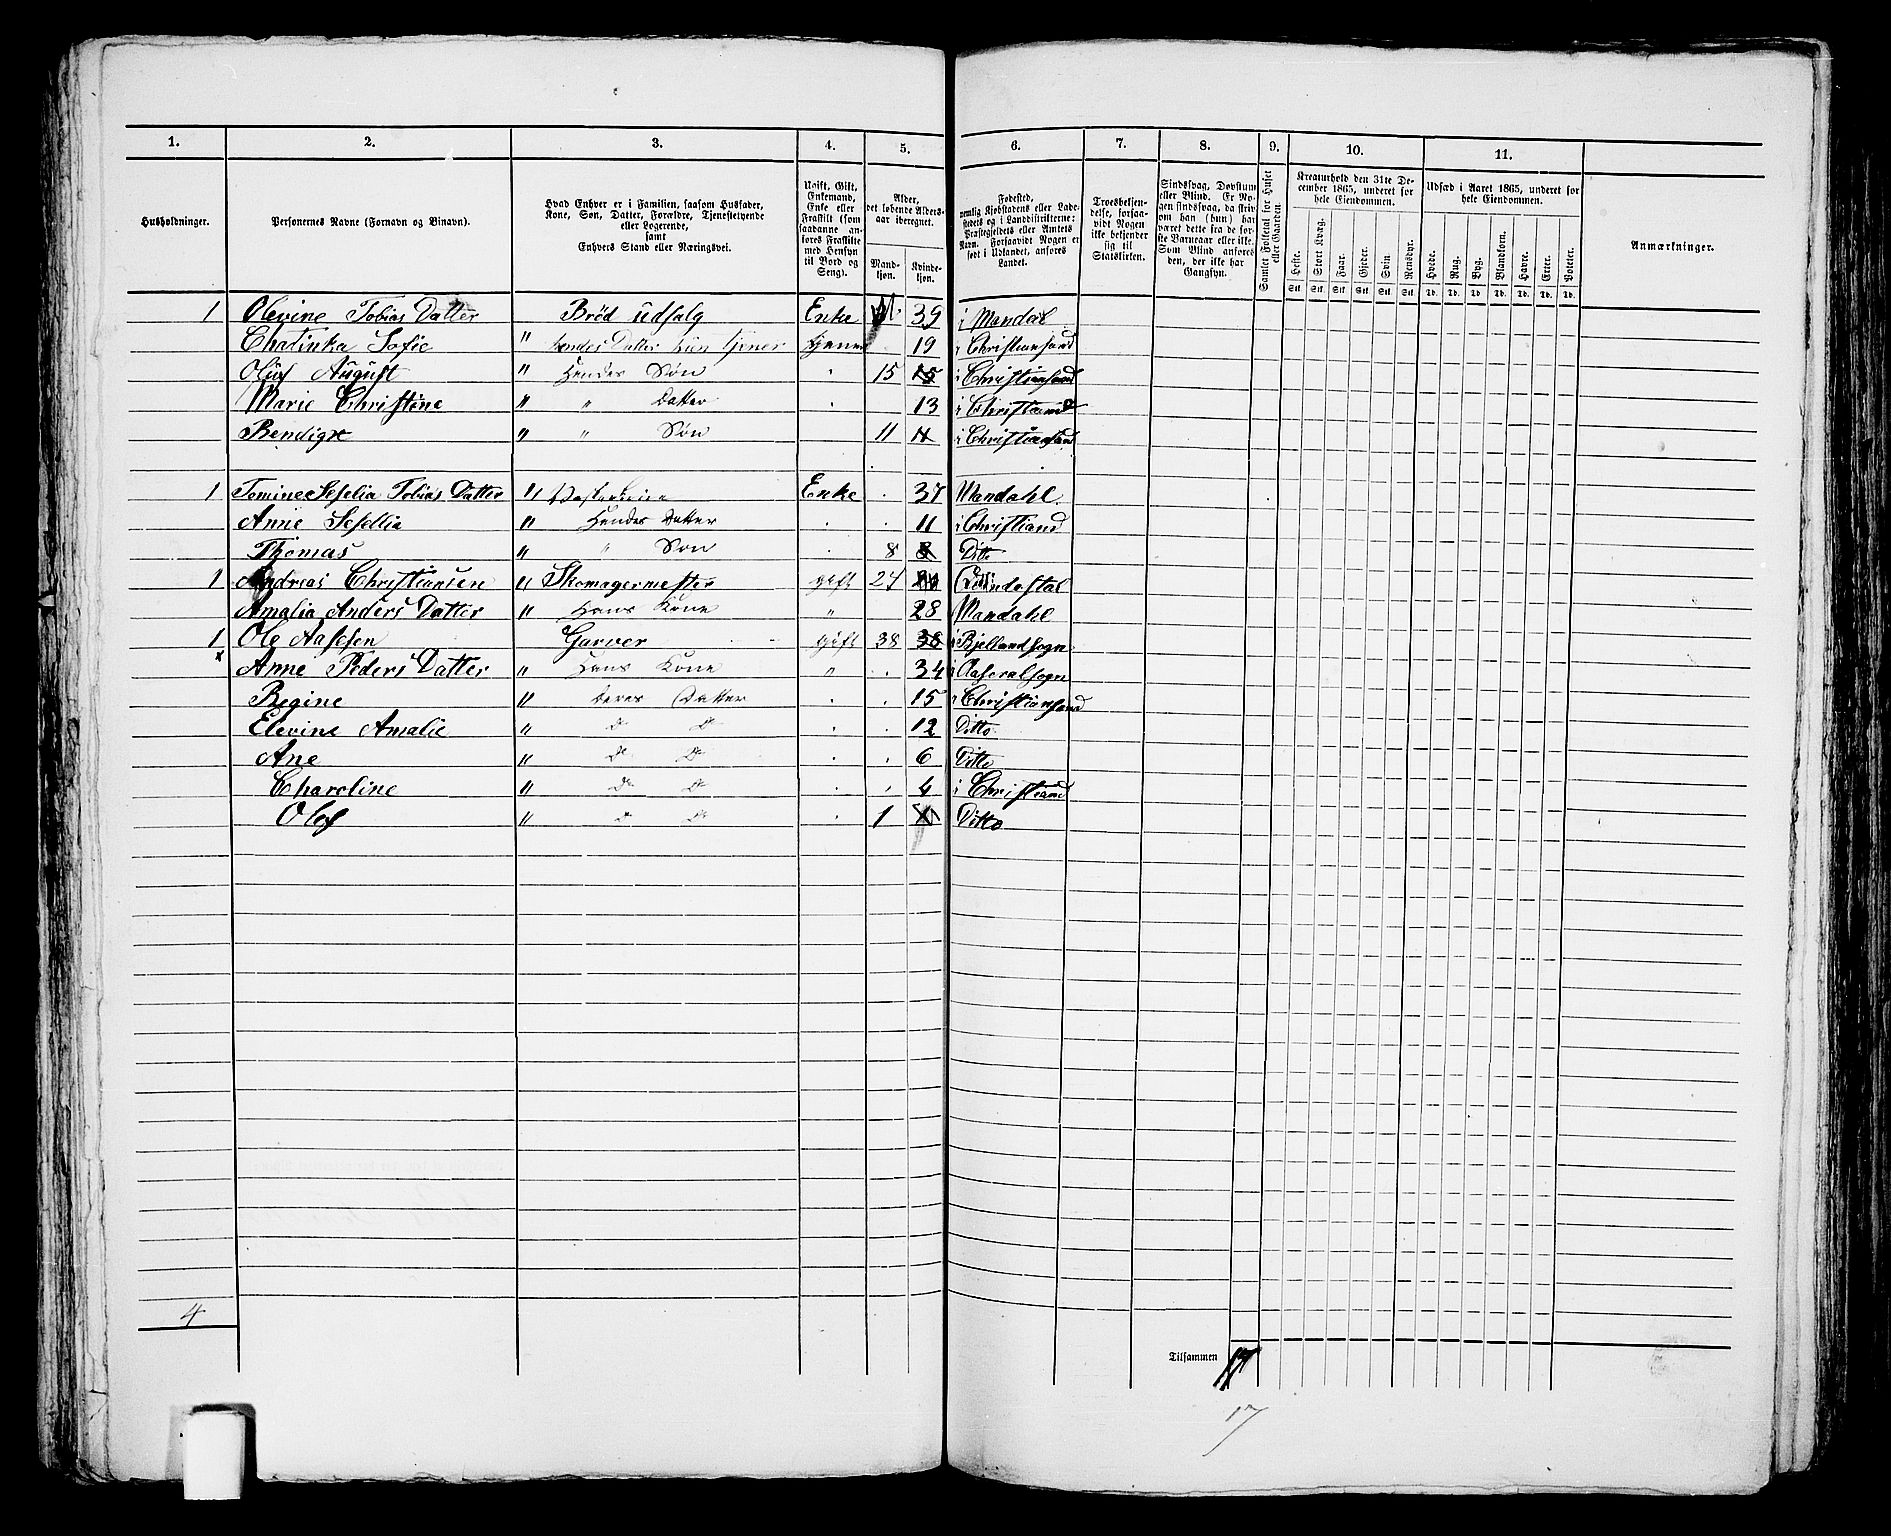 1. 2. 3. 4. 5. 6. 7. 8. 9. 10. 11.
Husholdninger.
Personernes Navne (Fornavn og Binavn).
Hvad Enhver er i Familien, saasom Husfader,
Kone, Søn, Datter, Forældre, Tjenestetyende
eller Logerende,
samt
Enhvers Stand eller Næringsvei.
Ugift, Gift,
Enkemand,
Enke eller
Fraskilt (som
saadanne an-
føres Fraskilte
med Hensyn
til Bord og
Seng).
Alder,
det løbende Alders-
aar iberegnet.
Mand-
kjøn.
Kvinde-
kjøn.
Fødested,
nemlig Kjøbstadens eller Lade-
stedets og i Landdistrikterne:
Præstegjeldets eller Amtets
Navn. Forsaavidt Nogen er
født i Udlandet, anføres
Landet.
Troesbekjen-
delse, forsaa-
vidt Nogen
ikke bekjender
sig til
Statskirken.
Sindssvag, Døvstum
eller Blind. Er No-
gen sindssvag, da skriv
om han (hun) har
været dette fra de før-
ste Barneaar eller ikke.
Som Blind anføres
den, der ikke har
Gangsyn.
Samlet Folketal for Huset
eller Gaarden.
Kreaturhold den 31te De-
cember 1865, underet for
hele Eiendommen.
Heste. Stort Kvæg. Faar. Gjeder. Svin. Rensdyr.
Stk. Stk. Stk. Stk. Stk. Stk.
Udsæd i Aaret 1865, underet for
hele Eiendommen.
Hvede. Rug. Byg. Blandkorn. Havre. Erter. Poteter.
Td. Td. Td. Td. Td. Td. Td.
Anmærkninger.
1 Olevine Tobias Datter Brød udsalg Enke 39 i Mandal
Chatinka Sofie " hendes Datter hun tjener tjener 19 i Christiansand
Oluf August " Hendes Søn 15 15 i Christiansand
Marie Christine " " Datter 13 i Christiansand
" " Søn 11 11 i Christiansand
1 Tomine Sefelia Tobias Datter " Enke 37 Mandahl
Anne Sefellia " Hendes Datter 11 i Christiand
Thomas " " Søn 8 8 Ditto
1 Andreas Christiansen " Skomagermester gift 24
Amalia Anders Datter " Hans Kone " 28 Mandahl
1 Ole Aasesen Garver gift 38 38 i Bjelland sogn
x Anne Peders Datter " Hans Kone " 34 i Aaseral sogn
Regine " deres Datter 15 i Christiansand
Elevine Amalie " Do Do 12 Ditto
Ane " Do Do 6 Ditto
Charoline " Do Do 4 i Christiand
Olof " Do Do 1 Ditto
4
Tilsammen 17
17